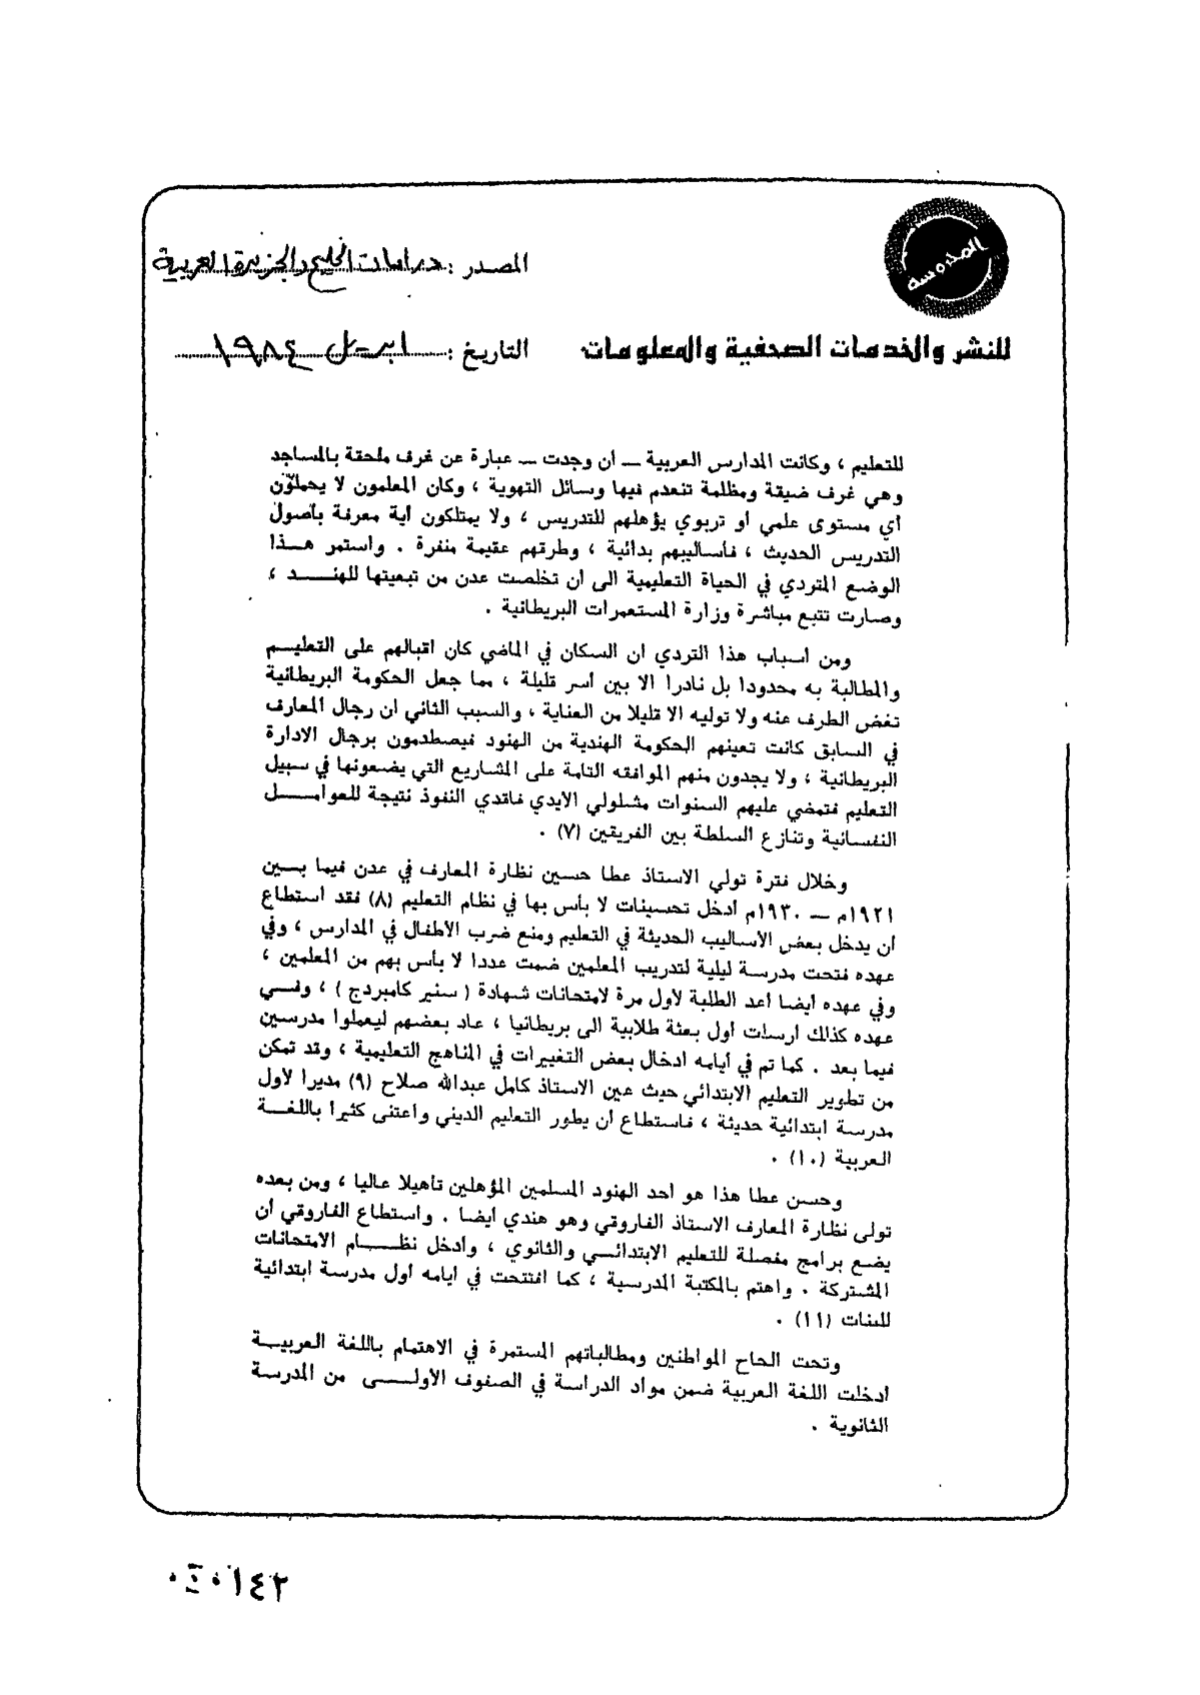 المحروسة
المصدر : دراسات الخليج والجزيرة العربية
للنشر والخدمات الصحفية والمعلومات
التاريخ : ابريل ١٩٨٤
للتعليم ، وكانت المدارس العربية ــ ان وجدت ــ عبارة عن غرف ملحقة بالمساجد
وهي غرف ضيقة ومظلمة تنعدم فيها وسائل التهوية ، وكان المعلمون لا يحملون
أي مستوى علمي أو تربوي يؤهلهم للتدريس ، ولا يمتلكون أية معرفة بأصول
التدريس الحديث ، فأساليبهم بدائية ، وطرقهم عقيمة منفرة . واستمر هـــذا
الوضع المتردي في الحياة التعليمية الى أن تخلصت عدن من تبعيتها للهنـــد ،
وصارت تتبع مباشرة وزارة المستعمرات البريطانية .
ومن أسباب هذا التردي ان السكان في الماضي كان اقبالهم على التعليــم
والمطالبة به محدودا بل نادرا الا بين أسر قليلة ، مما جعل الحكومة البريطانية
تغض الطرف عنه ولا توليه الا قليلا من العناية ، والسبب الثاني ان رجال المعارف
في السابق كانت تعينهم الحكومة الهندية من الهنود فيصطدمون برجال الادارة
البريطانية ، ولا يجدون منهم الموافقه التامة على المشاريع التي يضعونها في سبيل
التعليم فتمضي عليهم السنوات مشلولي الأيدي فاقدي النفوذ نتيجة للعوامـــل
النفسانية وتنازع السلطة بين الفريقين (٧) .
وخلال فترة تولي الاستاذ عطا حسين نظارة المعارف في عدن فيما بـــين
١٩٢١م ــ ١٩٣٠م أدخل تحسينات لا بأس بها في نظام التعليم (٨) فقد استطاع
أن يدخل بعض الأساليب الحديثة في التعليم ومنع ضرب الأطفال في المدارس ، وفي
عهده فتحت مدرسة ليلية لتدريب المعلمين ضمت عددا لا بأس بهم من المعلمين ،
وفي عهده أيضا أعد الطلبة لأول مرة لامتحانات شهادة ( سنير كامبردج ) ، وفــي
عهده كذلك ارسلت أول بعثة طلابية الى بريطانيا ، عاد بعضهم ليعملوا مدرسين
فيما بعد . كما تم في أيامه ادخال بعض التغييرات في المناهج التعليمية ، وقد تمكن
من تطوير التعليم الابتدائي حيث عين الاستاذ كامل عبدالله صلاح (٩) مديرا لأول
مدرسة ابتدائية حديثة ، فاستطاع أن يطور التعليم الديني واعتنى كثيرا باللغـــة
العربية (١٠) .
وحسن عطا هذا هو أحد الهنود المسلمين المؤهلين تأهيلا عاليا ، ومن بعده
تولى نظارة المعارف الاستاذ الفاروقي وهو هندي أيضا . واستطاع الفاروقي أن
يضع برامج مفصلة للتعليم الابتدائــي والثانوي ، وأدخل نظــــام الامتحانات
المشتركة . واهتم بالمكتبة المدرسية ، كما افتتحت في أيامه أول مدرسة ابتدائية
للبنات (١١) .
وتحت الحاح المواطنين ومطالباتهم المستمرة في الاهتمام باللغة العربيـــة
أدخلت اللغة العربية ضمن مواد الدراسة في الصفوف الأولــــى من المدرسة
الثانوية .